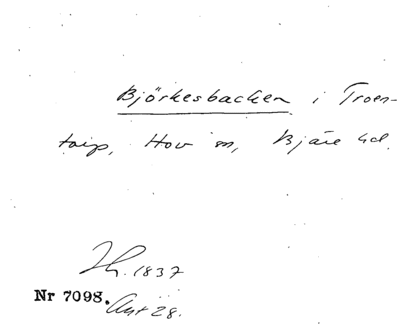 Björkesbacken i Troen-
torp, Hov sn, Bjäre hd.
Th. 1837
Nr 7098. Akt 28.